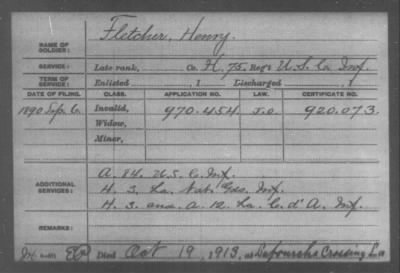 Fletcher, Henry.
NAME OF SOLDIER:
SERVICE: Late rank, Co. H, 75, Reg't U.S. C. Inf.
TERM OF SERVICE: Enlisted , 1 Discharged , 1
DATE OF FILING. CLASS. APPLICATION NO. LAW. CERTIFICATE NO.
1890 Sep. 6 Invalid, 970.454 J.O. 920.073.
Widow,
Minor,
A. 84. U.S. C. Inf.
ADDITIONAL SERVICES: H. 3. La. Nat. Gds. Inf.
H. 3. and A. 12. La. C. d' A. Inf.
REMARKS:
Died Oct 19, 1913, at Lafourche Crossing La